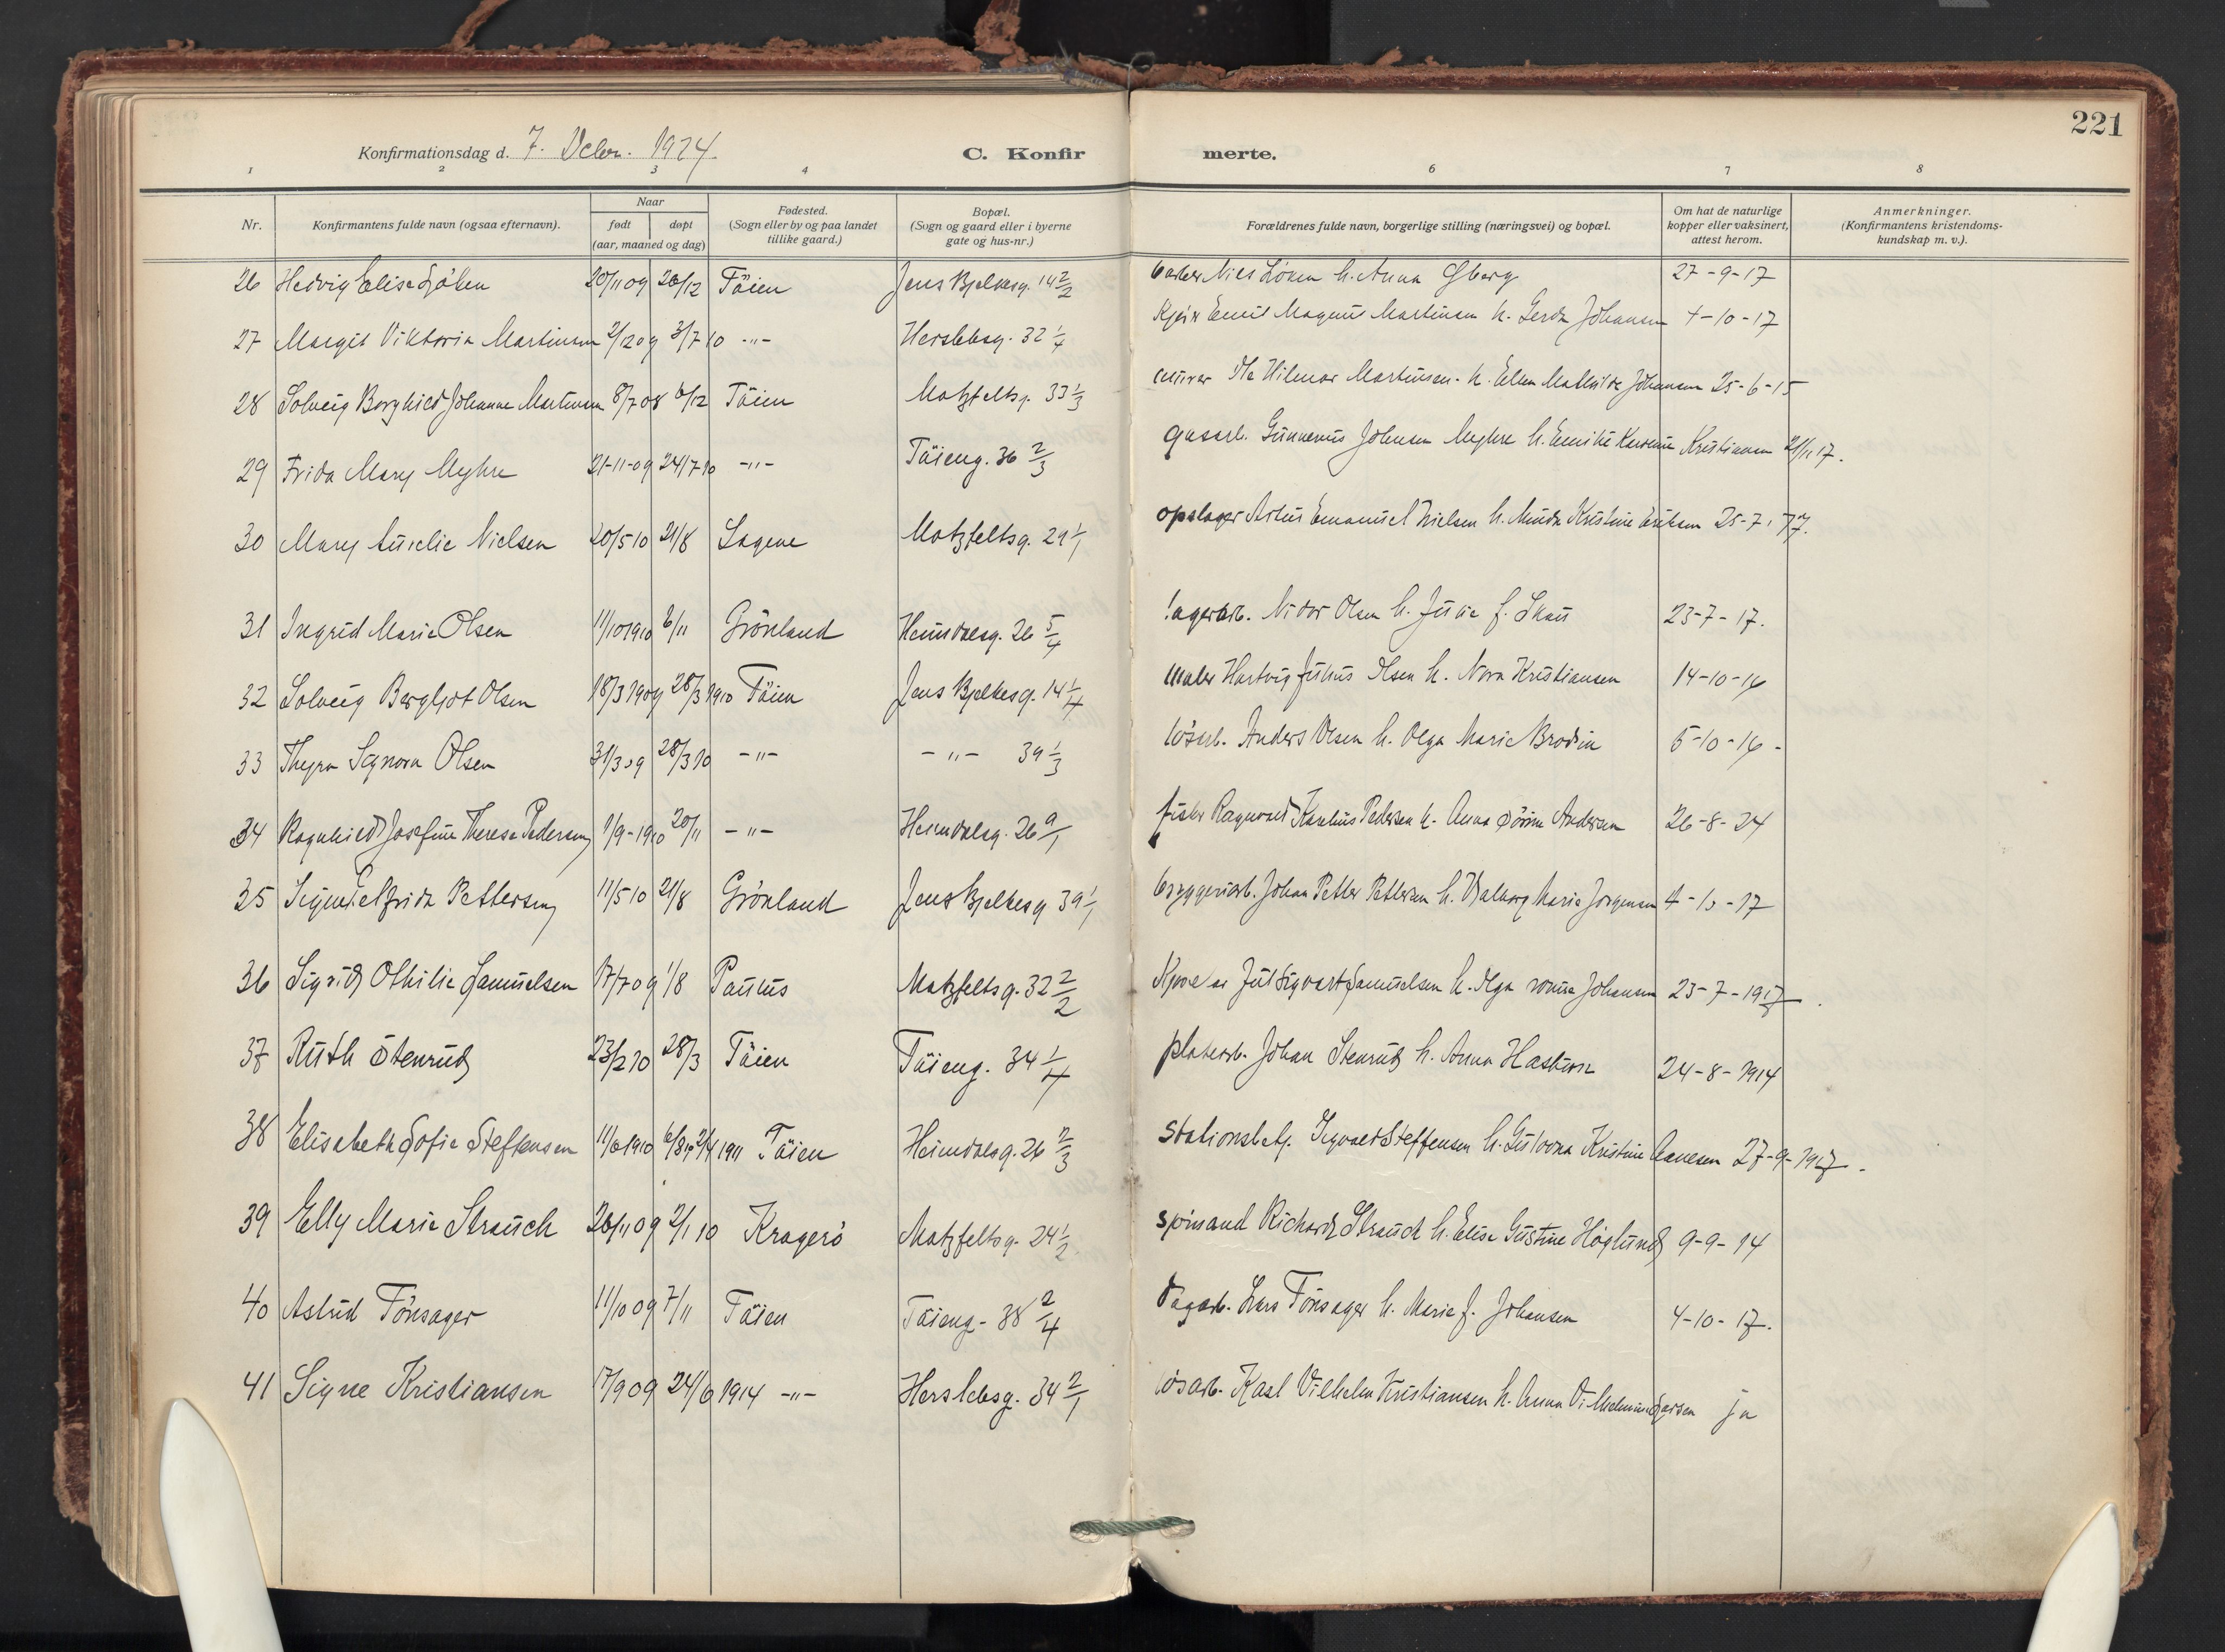 221
Konfirmationsdag d. 7. Decbr. 1924.
C. Konfirmerte.
1 2 3 4 6 7 8
Nr. Konfirmantens fulde navn (ogsaa efternavn). Naar født døpt (aar, maaned og dag) Fødested. (Sogn eller by og paa landet tillike gaard.) Bopæl. (Sogn og gaard eller i byerne gate og hus-nr.) Forældrenes fulde navn, borgerlige stilling (næringsvei) og bopæl. Om hat de naturlige kopper eller vaksinert, attest herom. Anmerkninger. (Konfirmantens kristendomskundskap m. v.).
26 Hedvig Elise 20/11 09 26/12 Töien Jens Bjelkesg. 14 2/2 Nils h. Anna 27-9-17
27 Margit Viktoria Martinsen 2/12 09 3/7 10 -"- Herslebsg. 32 1/4 Emil Magnus Martinsen h. Gerda Johansen 4-10-17
28 Solveig Borghild Johanne Martinsen 8/7 08 6/12 Töien Motzfeltsg. 33 1/3 Ole Hilmar Martinsen h. Ellen Mathilde Johansen 25-6-15
29 Frida Mary Myhre 21-11-09 24/7-10 -"- Töieng. 36 2/3 gasarb. Gunnerius Johnsen Myhre h. Emilie Kristiansen 21/11 17.
30 Mary Aurelie Nielsen 20/5 10 21/8 Sagene Motzfeltsg. 29 1/1 opslager Emanuel Nielsen h. Kristine Eriksen 25-7-17.
31 Ingrid Marie Olsen 11/10 1910 6/11 Grönland Heimdalsg. 26 5/4 lagerarb. Olsen h. Julie f. Skau 23-7-17.
32 Solveig Bergljot Olsen 18/3 1909 28/3 1910 Töien Jens Bjelkesg. 14 1/4 maler Hartvig Julius Olsen h. Nora Kristiansen 14-10-16
33 Thyra Signora Olsen 31/3 09 28/3 10 -"- -"- 39 1/3 lösarb. Anders Olsen h. Olga Marie Brodin 5-10-16-
34 Ragnhild Josefine Therese Pedersen 1/9-1910 20/11 -"- Heimdalsg. 26 9/1 fisker Ragnvald Pedersen h. Anna Andersen 26-8-24
35 Signe Elfrida Pettersen 11/5 10 21/8 Grönland Jens Bjelkesg 39 1/1 bryggeriarb. Johan Petter Pettersen h. Valborg Marie Jörgensen 4-10-17
36 Sigrid Othilie Samuelsen 17/7 09 1/8 Paulus Motzfeltsg. 32 2/2 Jul Sigvart Samuelsen h. Olga Johansen 23-7-1917.
37 Ruth Stenrud 23/2 10 28/3 Töien Töieng. 34 1/4 platearb. Johan Stenrud h. Anna 24-8-1914
38 Elisabeth Sofie Steffensen 11/6 1910 2/4 1911 Töien Heimdalsg. 26 2/3 stationsbetj. Sigvald Steffensen h. Kristine 27-9-1917.
39 Elly Marie Strauch 26/11 09 2/1 10 Kragerö Motzfeltsg. 24 1/2 Richard Strauch h. Elise Gustine Höglund 9-9-14
40 Astrid Tönsager 11/10 09 7/11 Töien Töieng. 38 2/4 dagarb. Lars Tönsager h. Marie f. Johansen 4-10-17.
41 Signe Kristiansen 17/9 09 24/6 1914 -"- Herslebsg. 34 2/1 lösarb. Karl Vilhelm Kristiansen h. Anna ja